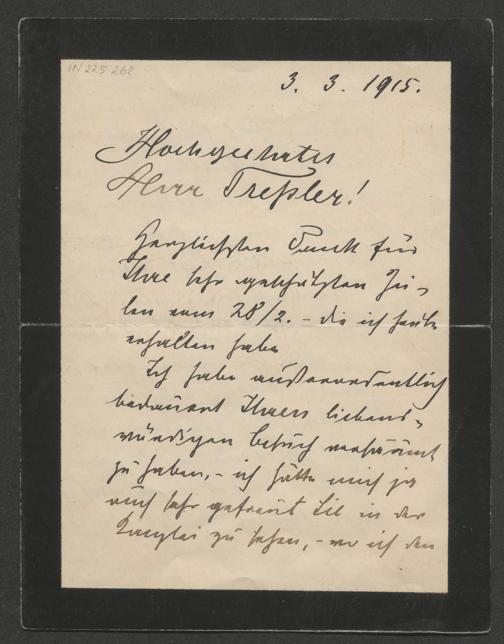 IN 225.268
3. 3. 1915.
Hochgeehrter
Herr Treßler!
Herzlichsten Dank für
Ihre sehr geschätzten Zei-
len vom 28/2. - die ich heute
erhalten habe
Ich habe außerordentlich
bedauert Ihren liebens-
würdigen Besuch versäumt
zu haben, - ich hätte mich ja
auch sehr gefreut Sie in der
Kanzlei zu sehen, - wo ich den